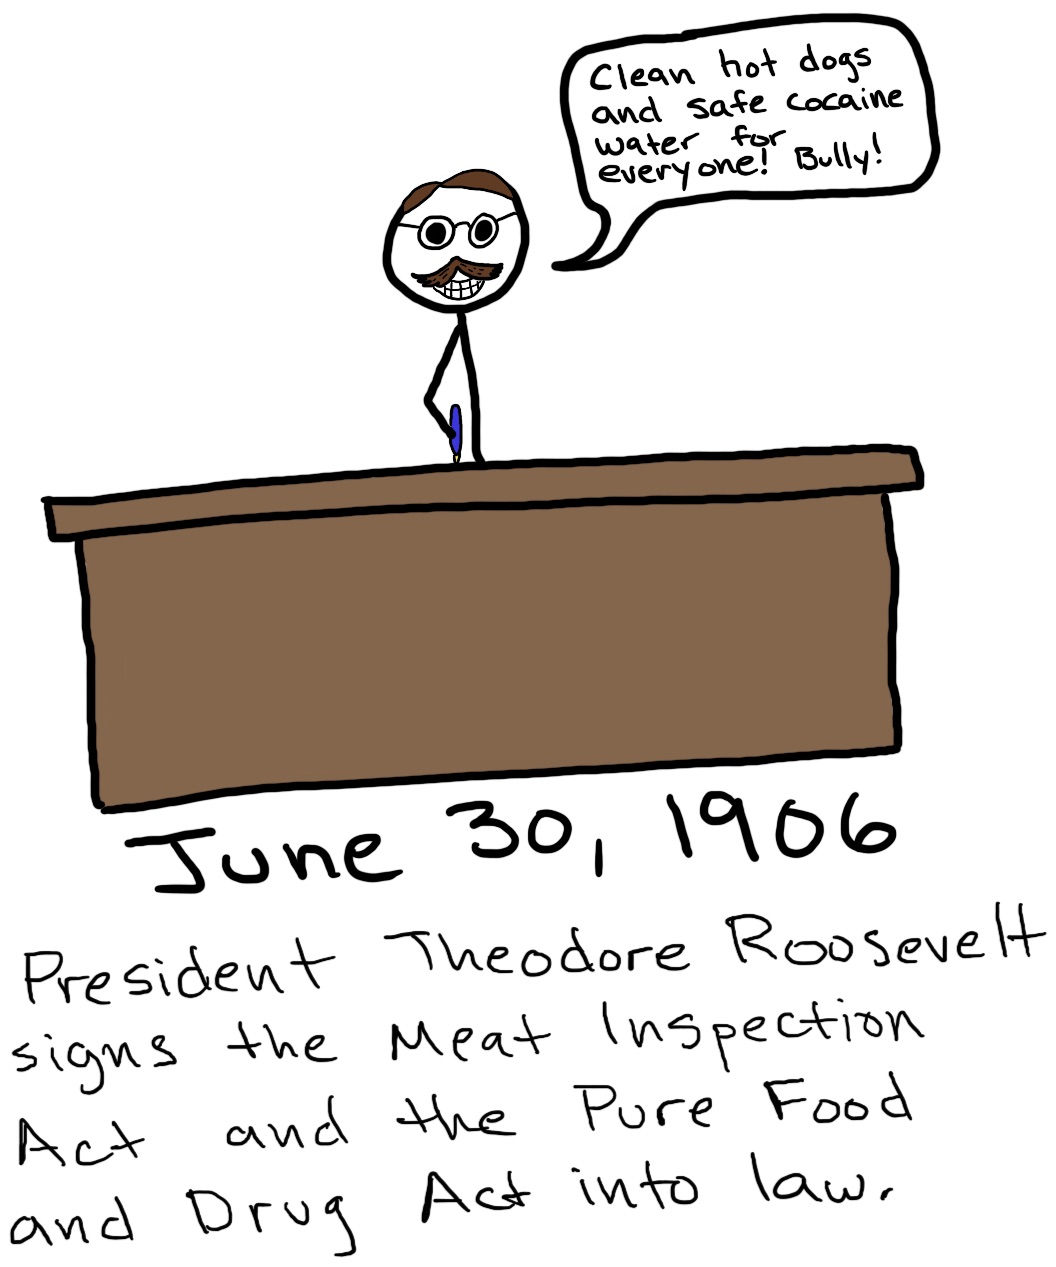 Clean hot dogs
and safe cocaine
water for
everyone! Bully!
June 30, 1906
President Theodore Roosevelt
signs the Meat Inspection
Act and the Pure Food
and Drug Act into law.